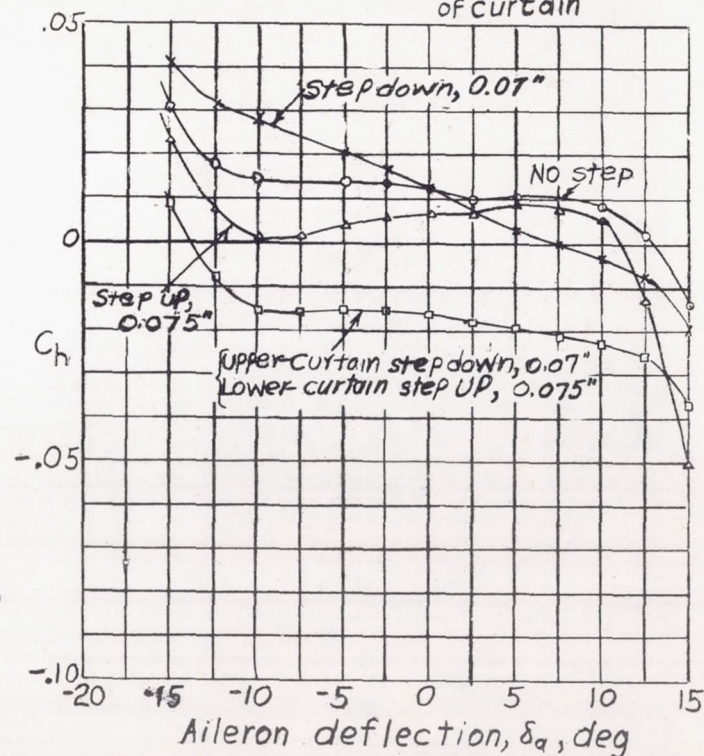 of curtain
.05
Step down, 0.07"
No step
0
Step up,
0.075"
Ch
Upper Curtain step down, 0.07"
Lower curtain step UP, 0.075"
-.05
-.10
-20 -15 -10 -5 0 5 10 15
Aileron deflection, δa, deg